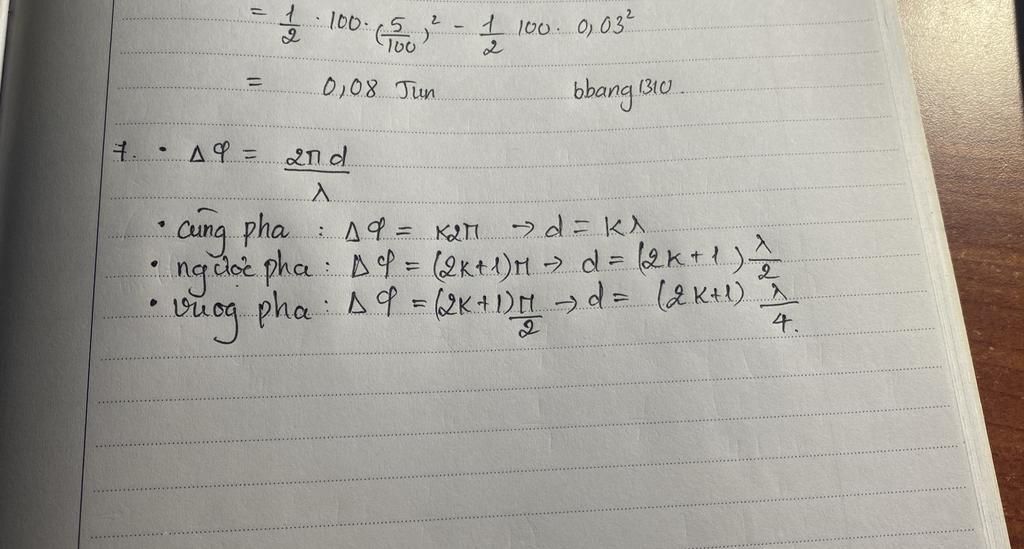 = 1/2 · 100 · (5/100)² - 1/2 100 · 0,03²
= 0,08 Jun bbang1310.
7. · Δφ = 2πd/λ
· cùng pha : Δφ = k2π → d = kλ
· ngược pha : Δφ = (2k+1)π → d = (2k+1) λ/2
· vuog pha : Δφ = (2k+1) π/2 → d = (2k+1) λ/4.